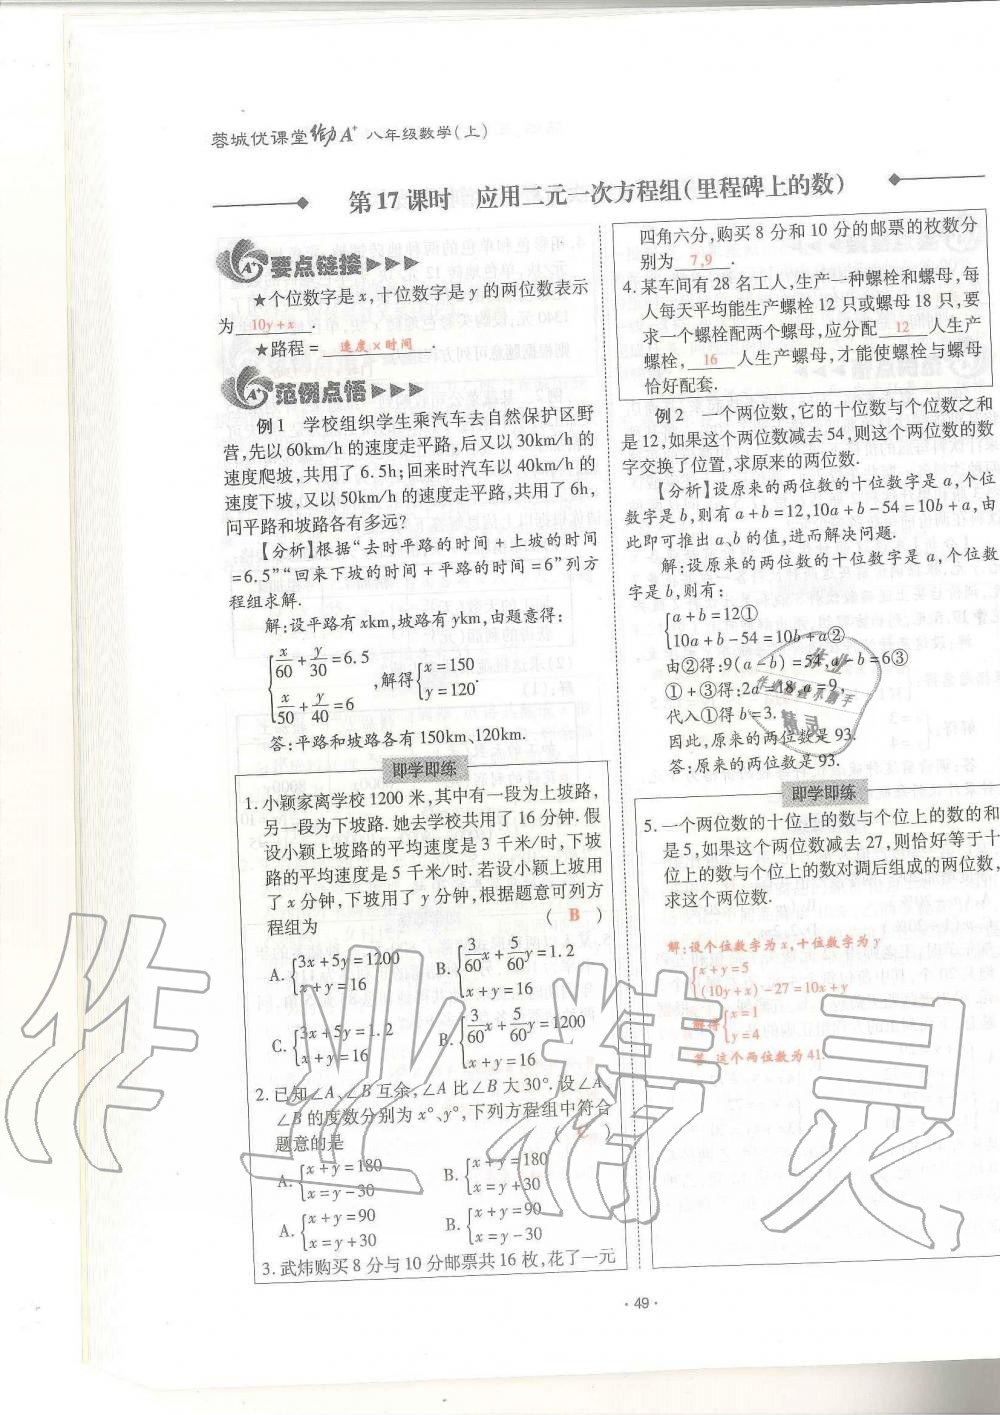 蓉城优课堂 A+ 八年级数学(上)
第17课时 应用二元一次方程组(里程碑上的数)
A+ 要点链接
★个位数字是x,十位数字是y的两位数表示
为 10y+x .
★路程= 速度×时间 .
A+ 范例点悟
例1 学校组织学生乘汽车去自然保护区野
营,先以60km/h的速度走平路,后又以30km/h的
速度爬坡,共用了6.5h;回来时汽车以40km/h的
速度下坡,又以50km/h的速度走平路,共用了6h,
问平路和坡路各有多远?
【分析】根据“去时平路的时间+上坡的时间
=6.5”“回来下坡的时间+平路的时间=6”列方
程组求解.
解:设平路有xkm,坡路有ykm,由题意得:
{x/60+y/30=6.5
x/50+y/40=6 ,解得{x=150
y=120.
答:平路和坡路各有150km、120km.
即学即练
1.小颖家离学校1200米,其中有一段为上坡路,
另一段为下坡路.她去学校共用了16分钟.假
设小颖上坡路的平均速度是3千米/时,下坡
路的平均速度是5千米/时.若设小颖上坡用
了x分钟,下坡用了y分钟,根据题意可列方
程组为 ( B )
A.{3x+5y=1200
x+y=16
B.{3/60x+5/60y=1.2
x+y=16
C.{3x+5y=1.2
x+y=16
B.{3/60x+5/60y=1200
x+y=16
2.已知∠A、∠B互余,∠A比∠B大30°.设∠A、
∠B的度数分别为x°、y°,下列方程组中符合
题意的是 ( C )
A.{x+y=180
x=y-30
B.{x+y=180
x=y+30
A.{x+y=90
x=y+30
B.{x+y=90
x=y-30
3.武炜购买8分与10分邮票共16枚,花了一元
四角六分,购买8分和10分的邮票的枚数分
别为 7,9 .
4.某车间有28名工人,生产一种螺栓和螺母,每
人每天平均能生产螺栓12只或螺母18只,要
求一个螺栓配两个螺母,应分配 12 人生产
螺栓, 16 人生产螺母,才能使螺栓与螺母
恰好配套.
例2 一个两位数,它的十位数与个位数之和
是12,如果这个两位数减去54,则这个两位数的数
字交换了位置,求原来的两位数.
【分析】设原来的两位数的十位数字是a,个位
数字是b,则有a+b=12,10a+b-54=10b+a,由
此即可推出a、b的值,进而解决问题.
解:设原来的两位数的十位数字是a,个位数
字是b,则有:
{a+b=12①
10a+b-54=10b+a②
由②得:9(a-b)=54,a-b=6③
①+③得:2a=18,a=9,
代入①得b=3.
因此,原来的两位数是93.
答:原来的两位数是93.
即学即练
5.一个两位数的十位上的数与个位上的数的和
是5,如果这个两位数减去27,则恰好等于十
位上的数与个位上的数对调后组成的两位数,
求这个两位数.
解:设个位数字为x,十位数字为y
{x+y=5
(10y+x)-27=10x+y
解得{x=1
y=4
答 这个两位数为41.
·49·
作业精灵
作业
作业检查小助手
精灵